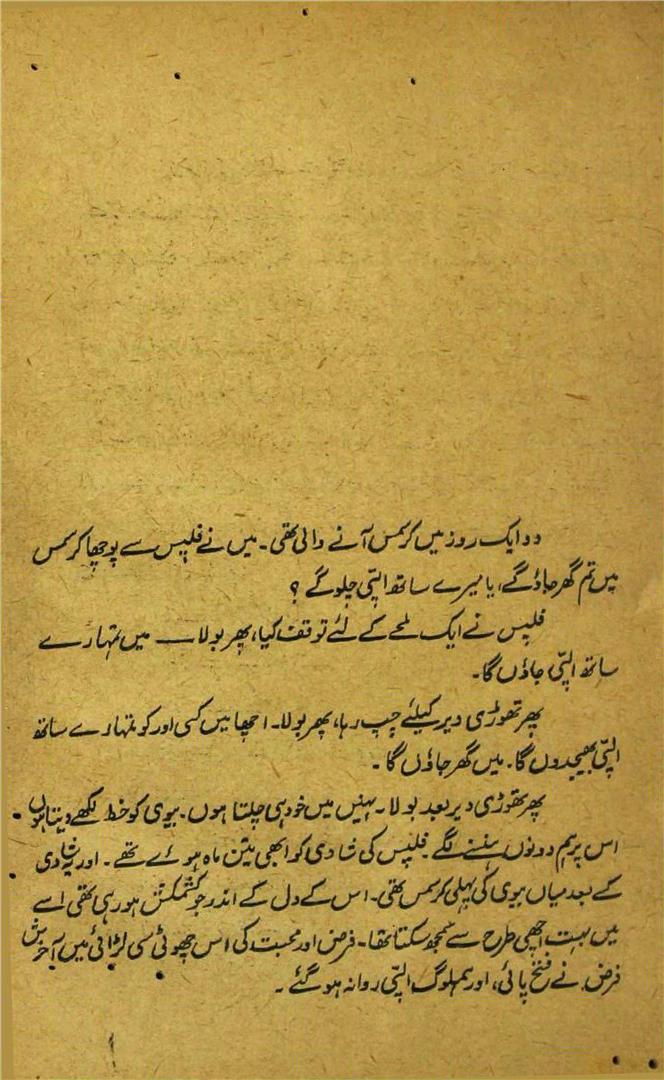 دو ایک روز میں کرسمس آنے والی تھی۔ میں نے فلپس سے پوچھا کرسمس
میں تم گھر جاؤ گے، یا میرے ساتھ الپّی چلو گے ؟
فلپس نے ایک لمحے کے لئے توقف کیا، پھر بولا — میں تمہارے
ساتھ الپّی جاؤں گا۔
پھر تھوڑی دیر کیلئے چپ رہا، پھر بولا۔ اچھا میں کسی اور کو تمہارے ساتھ
الپّی بھیجدوں گا۔ میں گھر جاؤں گا ۔
پھر تھوڑی دیر بعد بولا۔ نہیں میں خود ہی چلتا ہوں۔ بیوی کو خط لکھے دیتا ہوں۔
اس پر ہم دونوں ہنسنے لگے۔ فلپس کی شادی کو ابھی تین ماہ ہوئے تھے۔ اور یہ شادی
کے بعد میاں بیوی کی پہلی کرسمس تھی۔ اس کے دل کے اندر جو کشمکش ہو رہی تھی اسے
میں بہت اچھی طرح سے سمجھ سکتا تھا۔ فرض اور محبت کی اس چھوٹی سی لڑائی میں آخرش
فرض نے فتح پائی، اور ہملوگ الپّی روانہ ہو گئے ۔